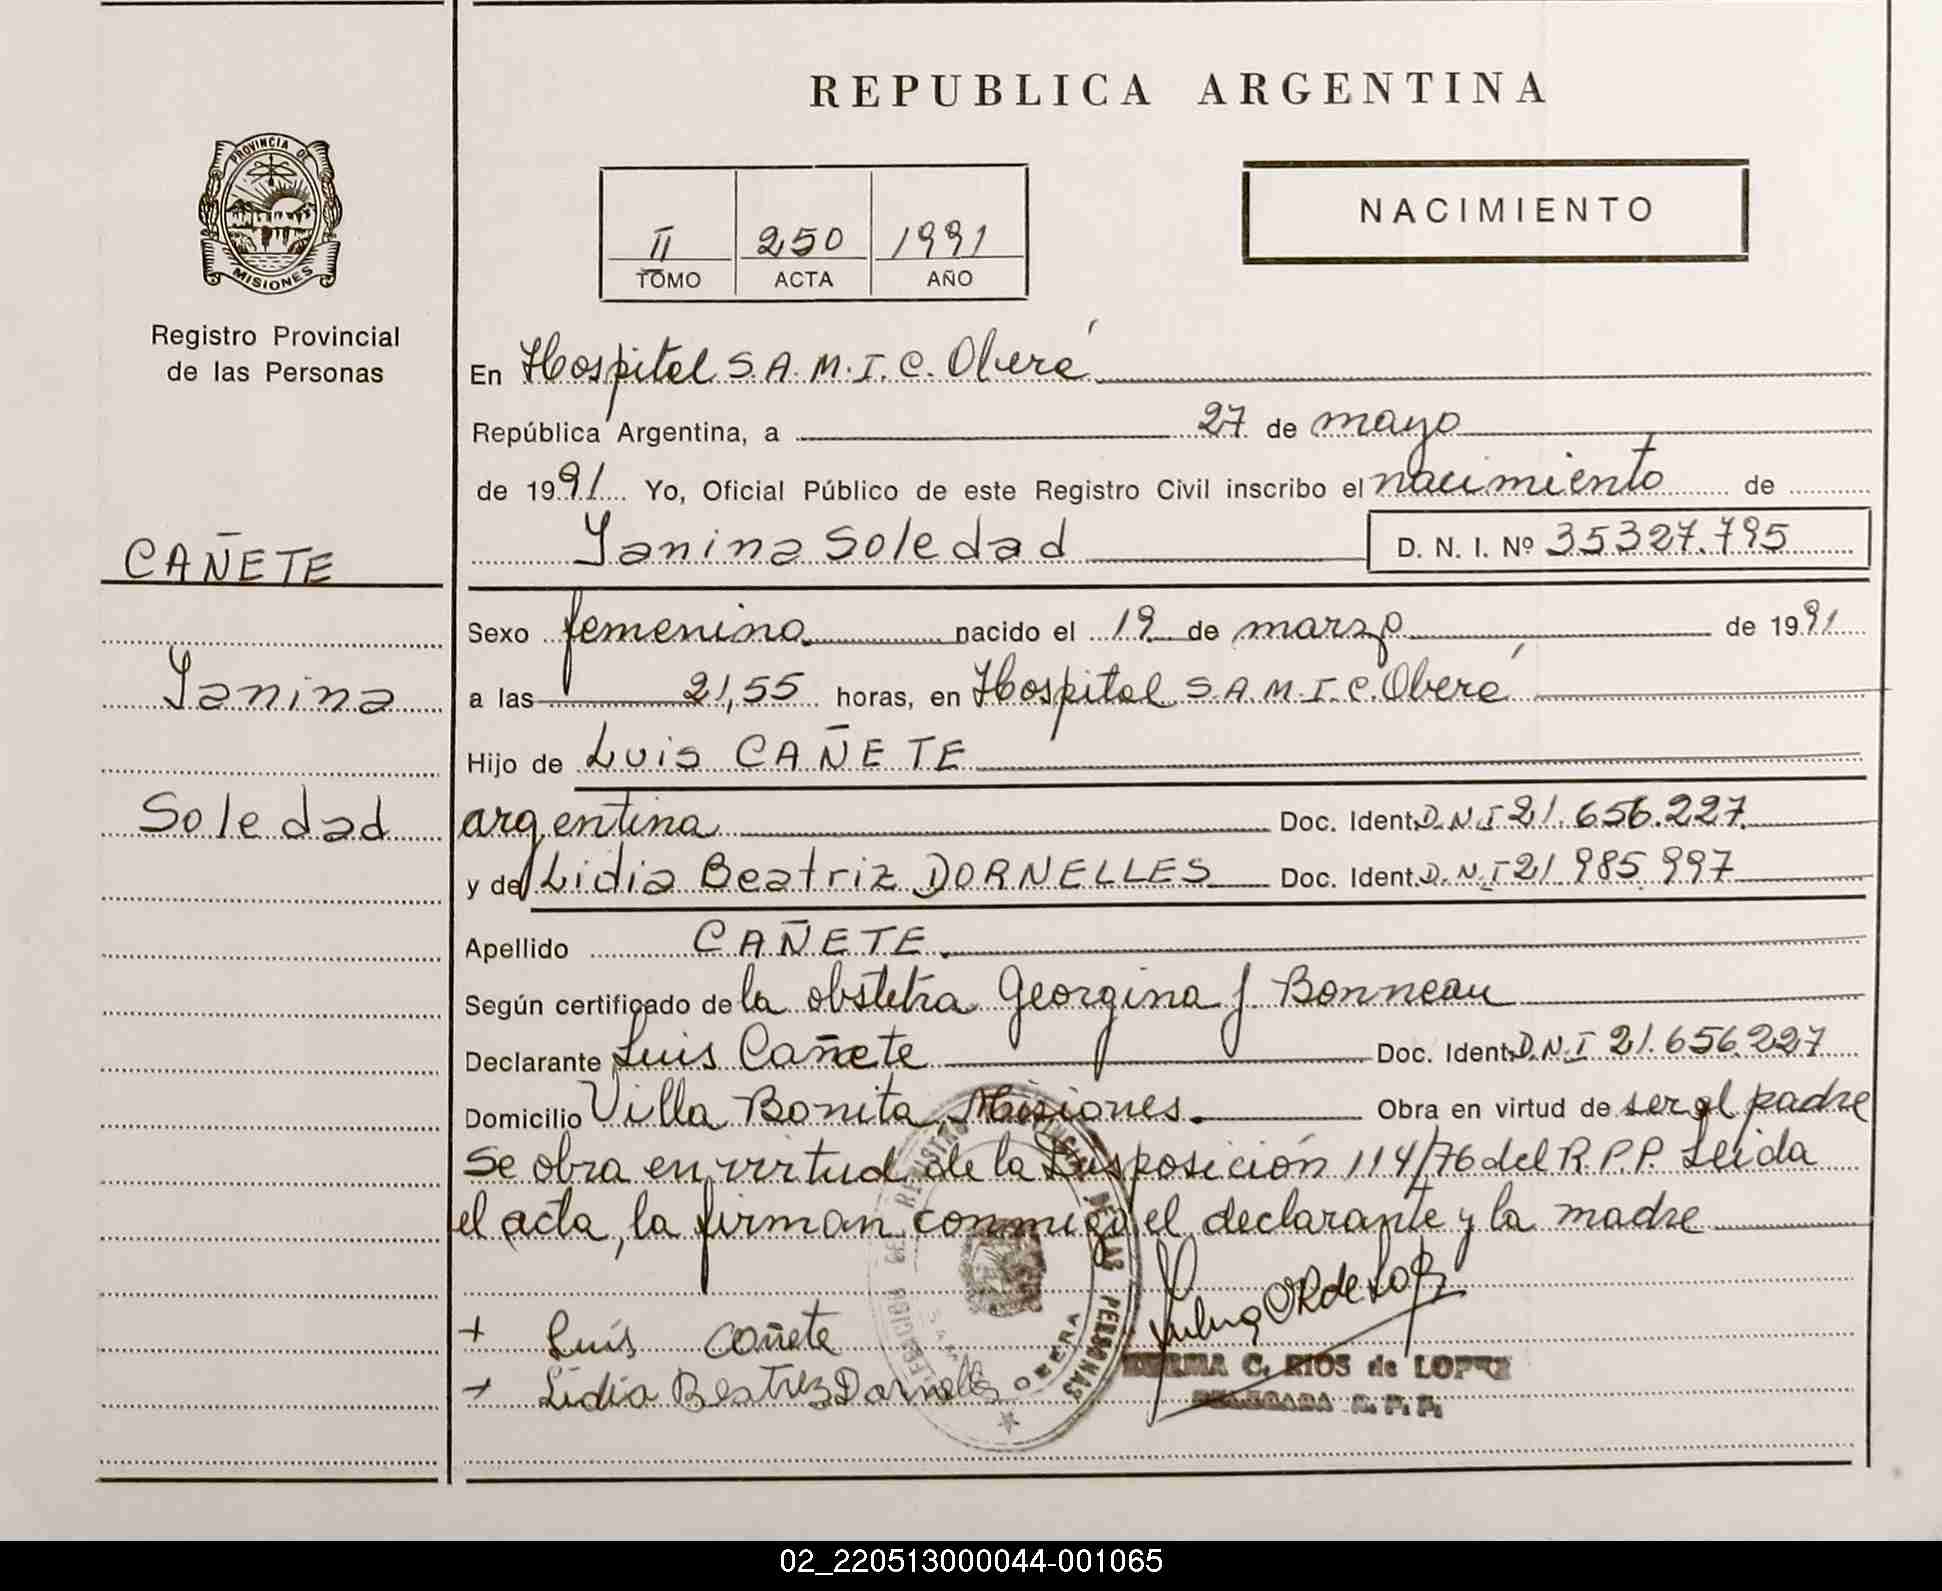 REPUBLICA ARGENTINA
PROVINCIA DE
MISIONES
Registro Provincial
de las Personas
II 250 1991
TOMO ACTA AÑO
NACIMIENTO
En Hospital S.A.M.I.C. Oberá
República Argentina, a 27 de mayo
de 1991 Yo, Oficial Público de este Registro Civil inscribo el nacimiento de
Yanina Soledad D. N. I. Nº 35327.795
CAÑETE
Yanina
Soledad
Sexo femenino nacido el 19 de marzo de 1991
a las 21,55 horas, en Hospital S.A.M.I.C. Oberá
Hijo de Luis CAÑETE
argentina Doc. Ident. D.N.I 21.656.227
y de Lidia Beatriz DORNELLES Doc. Ident. D.N.I 21 985.997
Apellido CAÑETE
Según certificado de la obstetra Georgina J Bonneau
Declarante Luis Cañete Doc. Ident. D.N.I 21.656.227
Domicilio Villa Bonita, Misiones. Obra en virtud de ser el padre
Se obra en virtud de la Disposición 114/76 del R.P.P. Leida
el acta, la firman conmigo el declarante y la madre
+ Luis Cañete
+ Lidia Beatriz Dornelles
DE LAS PERSONAS
OBERA
NORMA C. RIOS de LOPEZ
DELEGADA R. P. P.
02_220513000044-001065